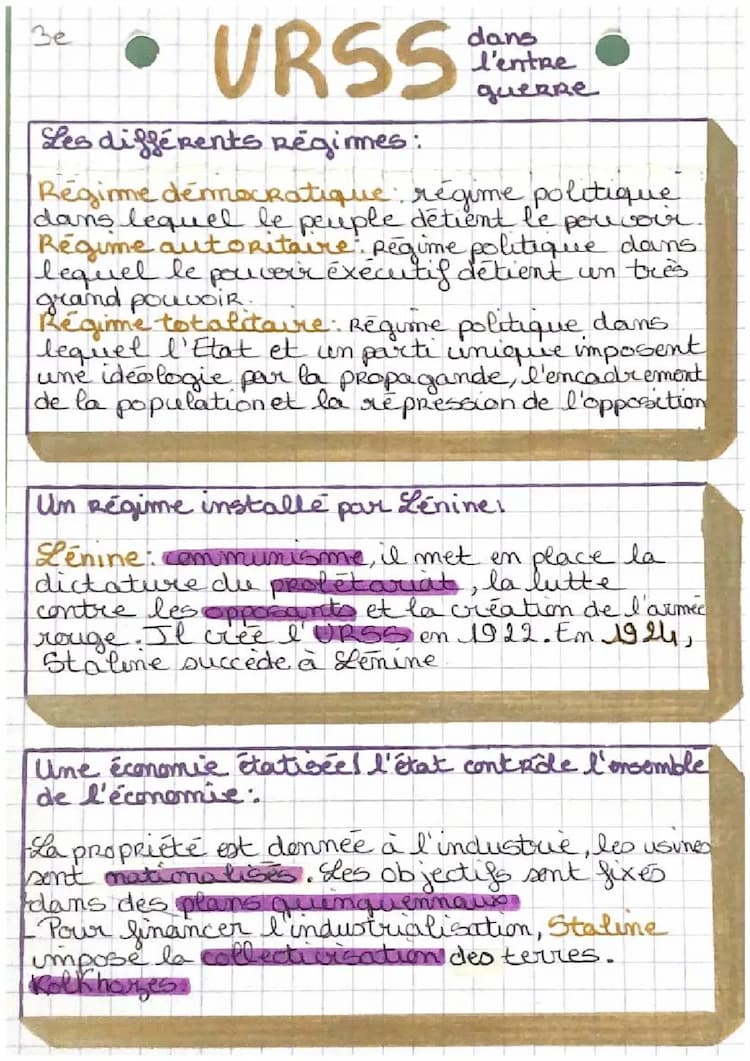 3e
URSS dans
l'entre
guerre
Les différents régimes :
Régime démocratique : régime politique
dans lequel le peuple détient le pouvoir.
Régime autoritaire : Régime politique dans
lequel le pouvoir éxécutif détient un très
grand pouvoir.
Régime totalitaire : Régime politique dans
lequel l'Etat et un parti unique imposent
une idéologie par la propagande, l'encadrement
de la population et la répression de l'opposition
Un régime installé par Lénine :
Lénine : communisme, il met en place la
dictature du prolétariat, la lutte
contre les opposants et la création de l'armée
rouge. Il crée l'URSS en 1922. En 1924,
Staline succède à Lénine.
Une économie étatisée/ l'état contrôle l'ensemble
de l'économie :
-La propriété est donnée à l'industrie, les usines
sont nationalisés. Les objectifs sont fixés
dans des plans quinquennaux
- Pour financer l'industrialisation, Staline
impose la collectivisation des terres.
Kolkhozes.